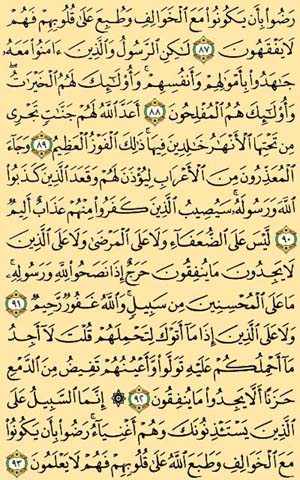 رَضُوا۟ بِأَن يَكُونُوا۟ مَعَ ٱلْخَوَالِفِ وَطُبِعَ عَلَىٰ قُلُوبِهِمْ فَهُمْ
لَا يَفْقَهُونَ ٨٧ لَٰكِنِ ٱلرَّسُولُ وَٱلَّذِينَ ءَامَنُوا۟ مَعَهُۥ
جَٰهَدُوا۟ بِأَمْوَٰلِهِمْ وَأَنفُسِهِمْ ۚ وَأُو۟لَٰٓئِكَ لَهُمُ ٱلْخَيْرَٰتُ ۖ
وَأُو۟لَٰٓئِكَ هُمُ ٱلْمُفْلِحُونَ ٨٨ أَعَدَّ ٱللَّهُ لَهُمْ جَنَّٰتٍ تَجْرِى
مِن تَحْتِهَا ٱلْأَنْهَٰرُ خَٰلِدِينَ فِيهَا ۚ ذَٰلِكَ ٱلْفَوْزُ ٱلْعَظِيمُ ٨٩ وَجَآءَ
ٱلْمُعَذِّرُونَ مِنَ ٱلْأَعْرَابِ لِيُؤْذَنَ لَهُمْ وَقَعَدَ ٱلَّذِينَ كَذَبُوا۟
ٱللَّهَ وَرَسُولَهُۥ ۚ سَيُصِيبُ ٱلَّذِينَ كَفَرُوا۟ مِنْهُمْ عَذَابٌ أَلِيمٌ
٩٠ لَّيْسَ عَلَى ٱلضُّعَفَآءِ وَلَا عَلَى ٱلْمَرْضَىٰ وَلَا عَلَى ٱلَّذِينَ
لَا يَجِدُونَ مَا يُنفِقُونَ حَرَجٌ إِذَا نَصَحُوا۟ لِلَّهِ وَرَسُولِهِۦ ۚ
مَا عَلَى ٱلْمُحْسِنِينَ مِن سَبِيلٍ ۚ وَٱللَّهُ غَفُورٌ رَّحِيمٌ ٩١
وَلَا عَلَى ٱلَّذِينَ إِذَا مَآ أَتَوْكَ لِتَحْمِلَهُمْ قُلْتَ لَآ أَجِدُ
مَآ أَحْمِلُكُمْ عَلَيْهِ تَوَلَّوا۟ وَّأَعْيُنُهُمْ تَفِيضُ مِنَ ٱلدَّمْعِ
حَزَنًا أَلَّا يَجِدُوا۟ مَا يُنفِقُونَ ٩٢ ۞ إِنَّمَا ٱلسَّبِيلُ عَلَى
ٱلَّذِينَ يَسْتَـْٔذِنُونَكَ وَهُمْ أَغْنِيَآءُ ۚ رَضُوا۟ بِأَن يَكُونُوا۟
مَعَ ٱلْخَوَالِفِ وَطَبَعَ ٱللَّهُ عَلَىٰ قُلُوبِهِمْ فَهُمْ لَا يَعْلَمُونَ ٩٣